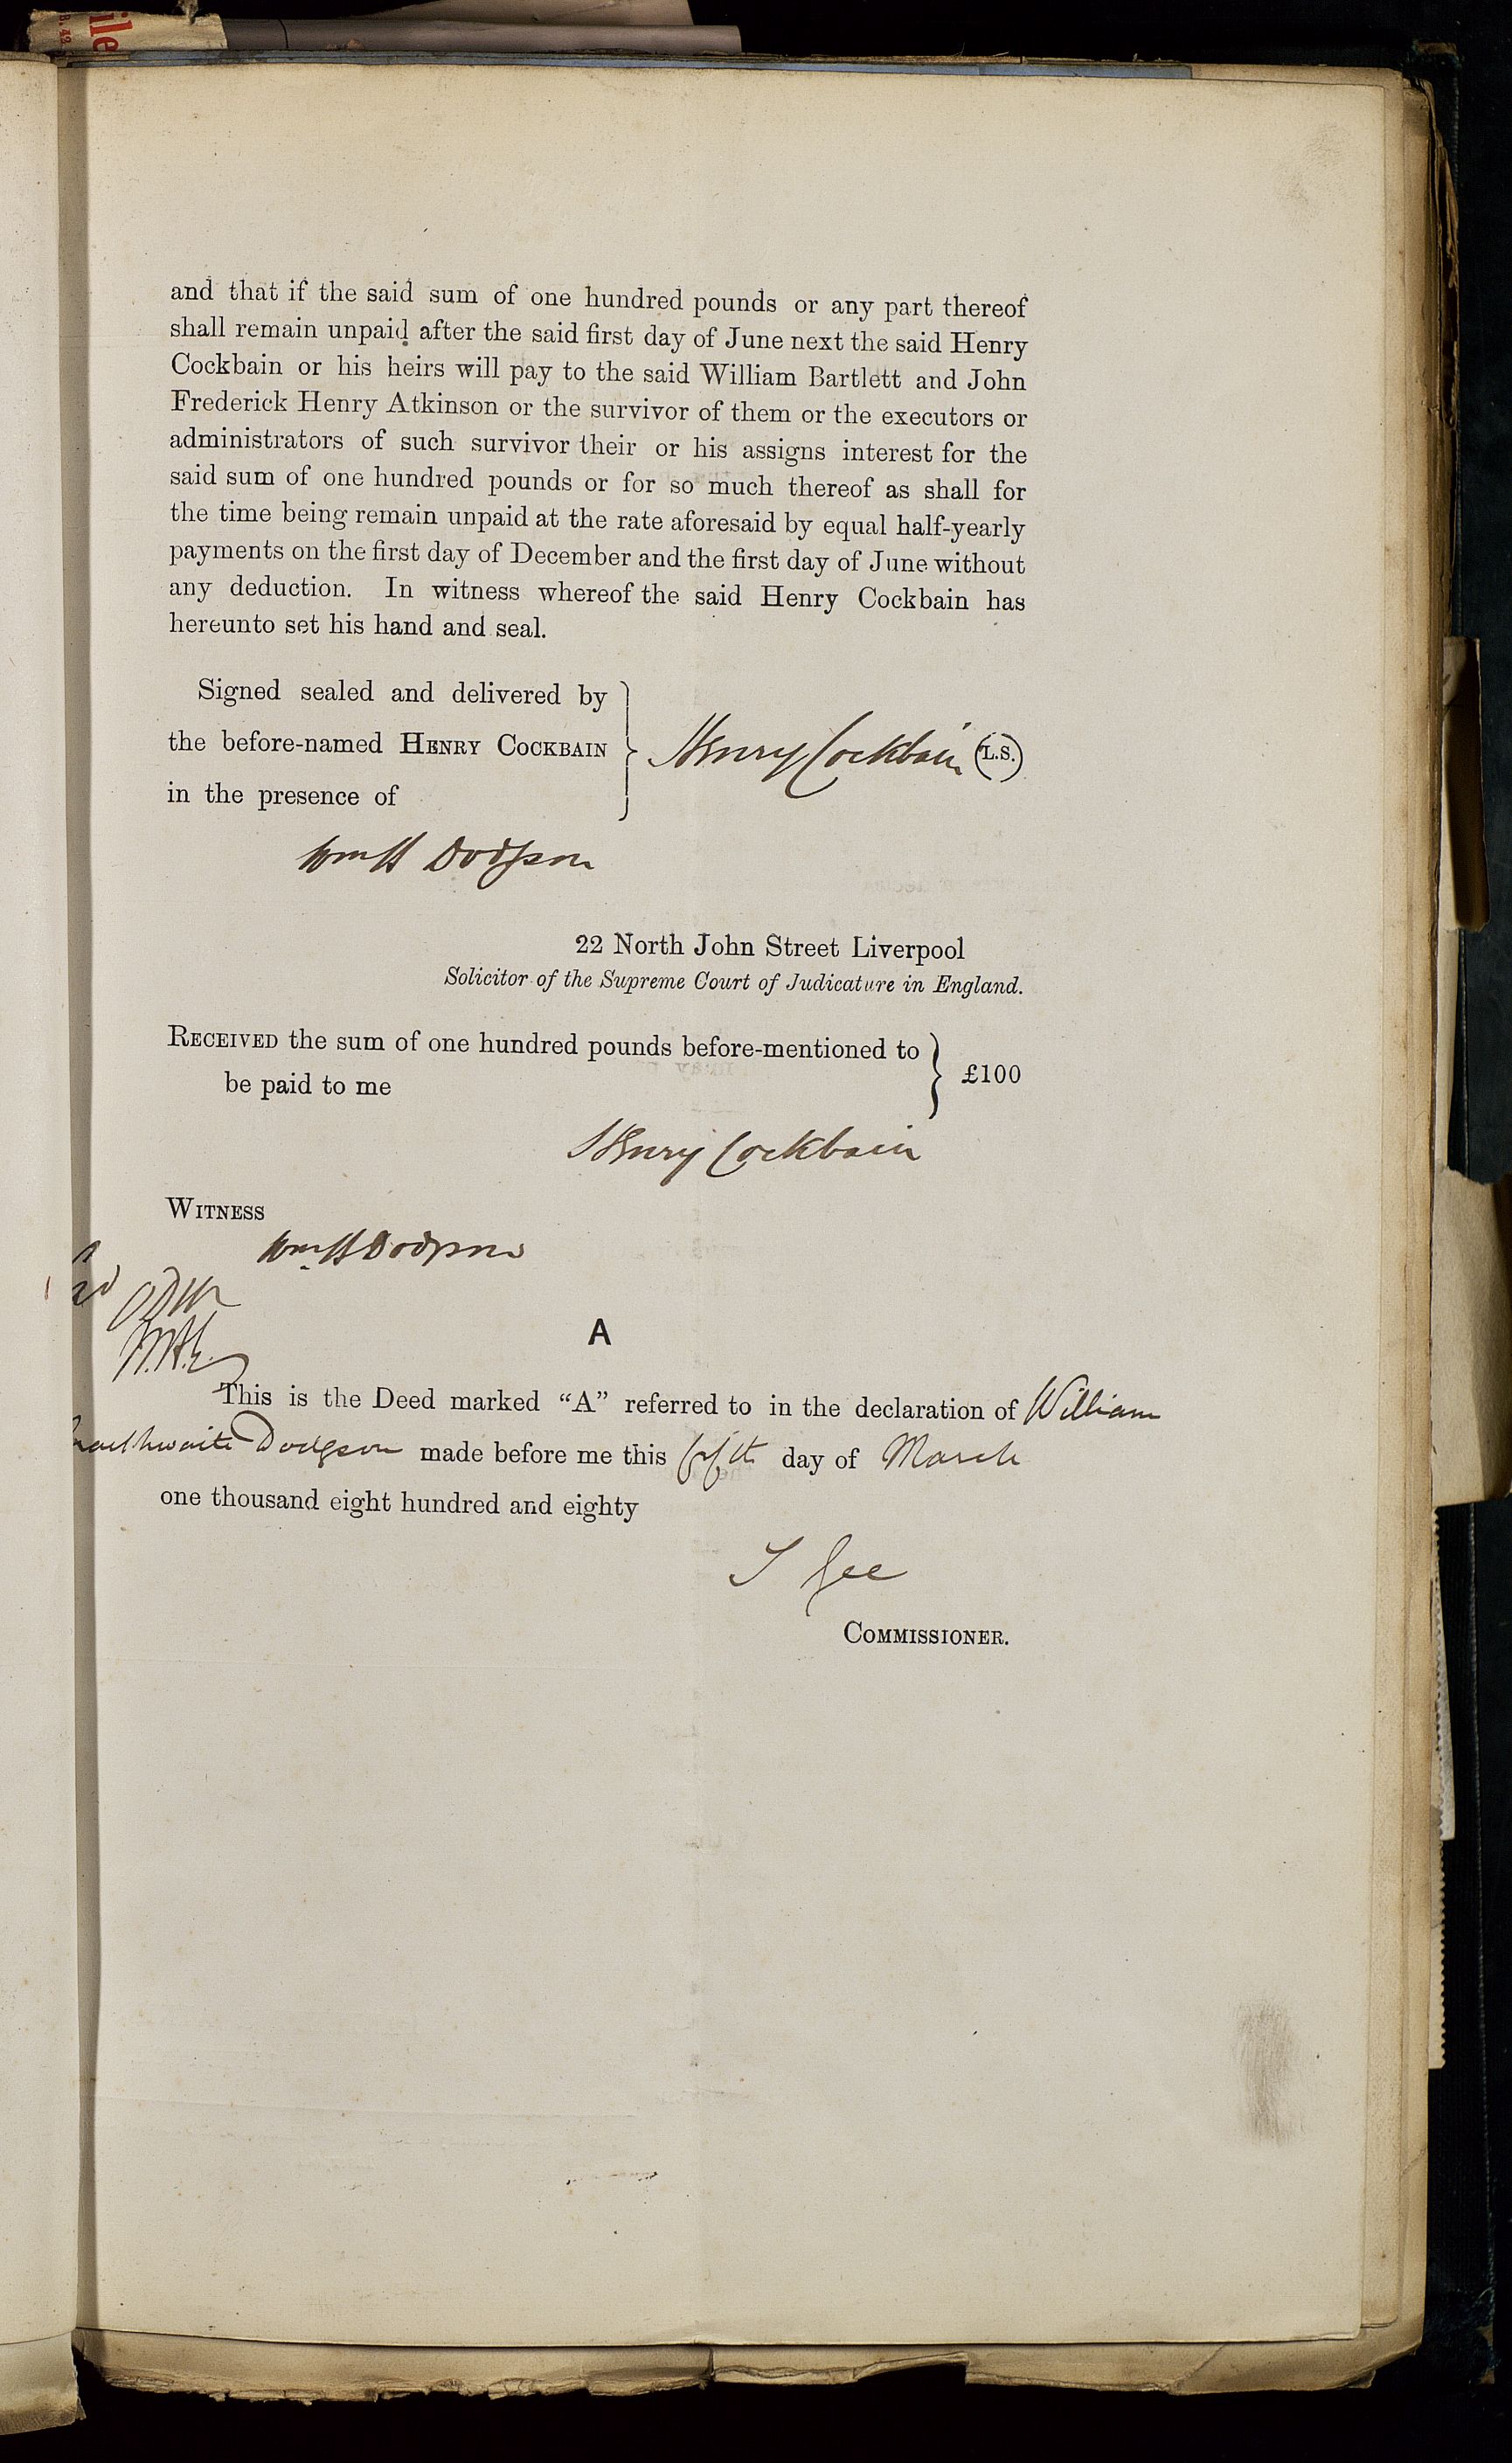 and that if the said sum of one hundred pounds or any part thereof
shall remain unpaid after the said first day of June next the said Henry
Cockbain or his heirs will pay to the said William Bartlett and John
Frederick Henry Atkinson or the survivor of them or the executors or
administrators of such survivor their or his assigns interest for the
said sum of one hundred pounds or for so much thereof as shall for
the time being remain unpaid at the rate aforesaid by equal half-yearly
payments on the first day of December and the first day of June without
any deduction. In witness whereof the said Henry Cockbain has
hereunto set his hand and seal.
Signed sealed and delivered by
the before-named HENRY COCKBAIN
in the presence of
Henry Cockbain
L.S.
Wm H Dodgson
22 North John Street Liverpool
Solicitor of the Supreme Court of Judicature in England.
RECEIVED the sum of one hundred pounds before-mentioned to
be paid to me
£100
Henry Cockbain
WITNESS
Wm H Dodgson
A
This is the Deed marked “A” referred to in the declaration of William
Dodgson made before me this fifth day of March
one thousand eight hundred and eighty
Gee
COMMISSIONER.